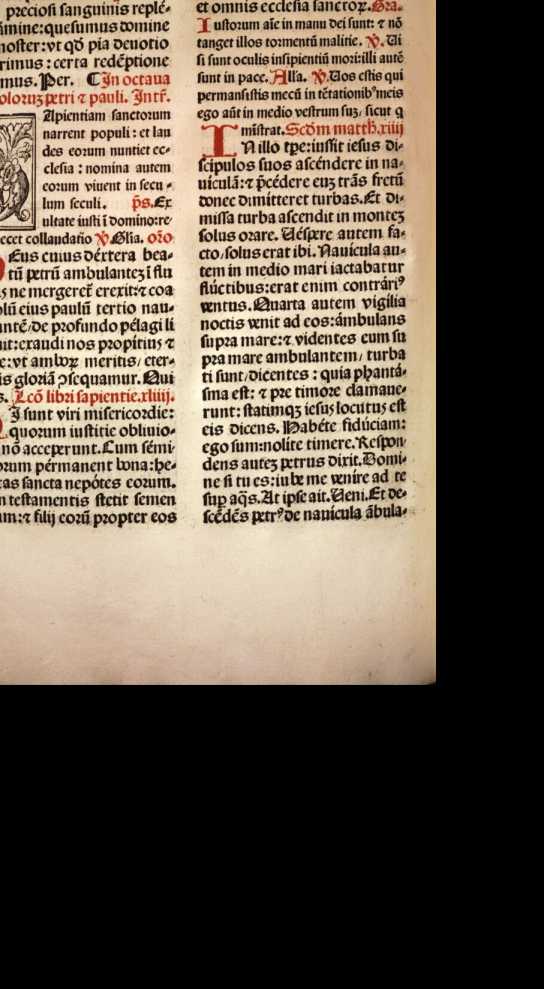 preciosi sanguinis reple-
amine: quesumus domine
noster: vt qd̄ pia deuotio
rimus: certa redēptione
mus. Per. ¶In octaua
oloruꝫ petri ⁊ pauli. Intr̄.
Apientiam sanctorum
narrent populi: et lau
des eorum nuntiet ec-
clesia: nomina autem
eorum viuent in secu-
lum seculi. ps̄. Ex
ultate iusti ī domino: re
ecet collaudatio ℣. Gl̄ia. orō
Eus cuius déxtera bea-
tū petrū ambulanteꝫ ī flu
s ne mergeret̄ erexit: ⁊ coa
lū eius paulū tertio nau-
untē/ de profundo pélagi li
uit: exaudi nos propitius ⁊
e: vt amboꝝ meritis/ eter-
is gloriā ꝯsequamur. Qui
s. Lcō libri sapientie. xliiij.
I sunt viri misericordie:
quorum iustitie obliuio-
nō acceperunt. Cum sémi-
orum pérmanent bona: he-
tas sancta nepótes eorum.
n testamentis stetit semen
um: ⁊ filij eorū propter eos
et omnis ecclesia sanctoꝝ. Gra.
Iustorum aīe in manu dei sunt: ⁊ nō
tanget illos tormentū malitie. ℣. Ui
si sunt oculis insipientiū mori: illi autē
sunt in pace. Alla. ℣. Uos estis qui
permansistis mecū in tētationibꝰ meis
ego aūt in medio vestrum suꝫ/ sicut q
mīstrat. Scd̄m matth. xiiij
IN illo tp̄e: iussit iesus di-
scipulos suos ascéndere in na-
uiculā: ⁊ p̄cédere euꝫ trās fretū
donec dimitteret turbas. Et di-
missa turba ascendit in monteꝫ
solus orare. Uéspere autem fa-
cto/ solus erat ibi. Nauicula au-
tem in medio mari iactabatur
flúctibus: erat enim contrāriꝰ
ventus. Quarta autem vigília
noctis venit ad eos: ámbulans
supra mare: ⁊ videntes eum su
pra mare ambulantem/ turba
ti sunt/ dicentes: quia phantá-
sma est: ⁊ pre timore clamaue-
runt: statimqꝫ iesus locutus est
eis dicens. Habéte fidúciam:
ego sum: nolite timere. Respon
dens auteꝫ petrus dixit. Domi-
ne si tu es: iube me venire ad te
sup aq̄s. At ipse ait. Ueni. Et de-
scédēs petrꝰ de nauicula ābula-